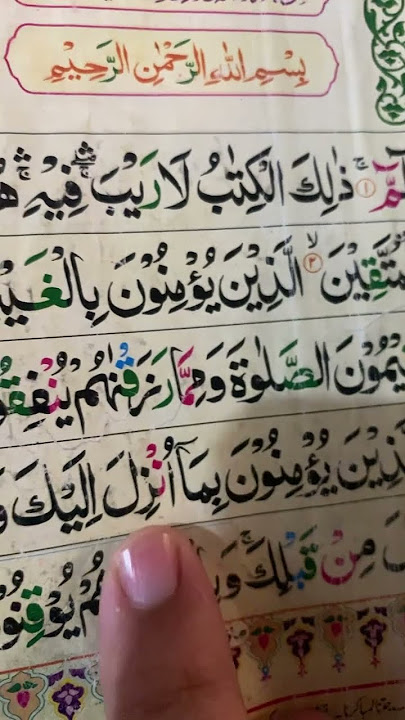 بِسْمِ اللهِ الرَّحْمٰنِ الرَّحِيْمِ
الٓمّٓ ۚ ﴿۱﴾ ذٰلِكَ الْكِتٰبُ لَا رَيْبَ ۛۚ فِيْهِ ۛۚ
لِّلْمُتَّقِيْنَ ۙ ﴿۲﴾ الَّذِيْنَ يُؤْمِنُوْنَ بِالْغَيْبِ
وَيُقِيْمُوْنَ الصَّلٰوةَ وَمِمَّا رَزَقْنٰهُمْ يُنْفِقُوْنَ
وَالَّذِيْنَ يُؤْمِنُوْنَ بِمَاۤ اُنْزِلَ اِلَيْكَ
مِنْ قَبْلِكَ ۚ يُوْقِنُوْنَ